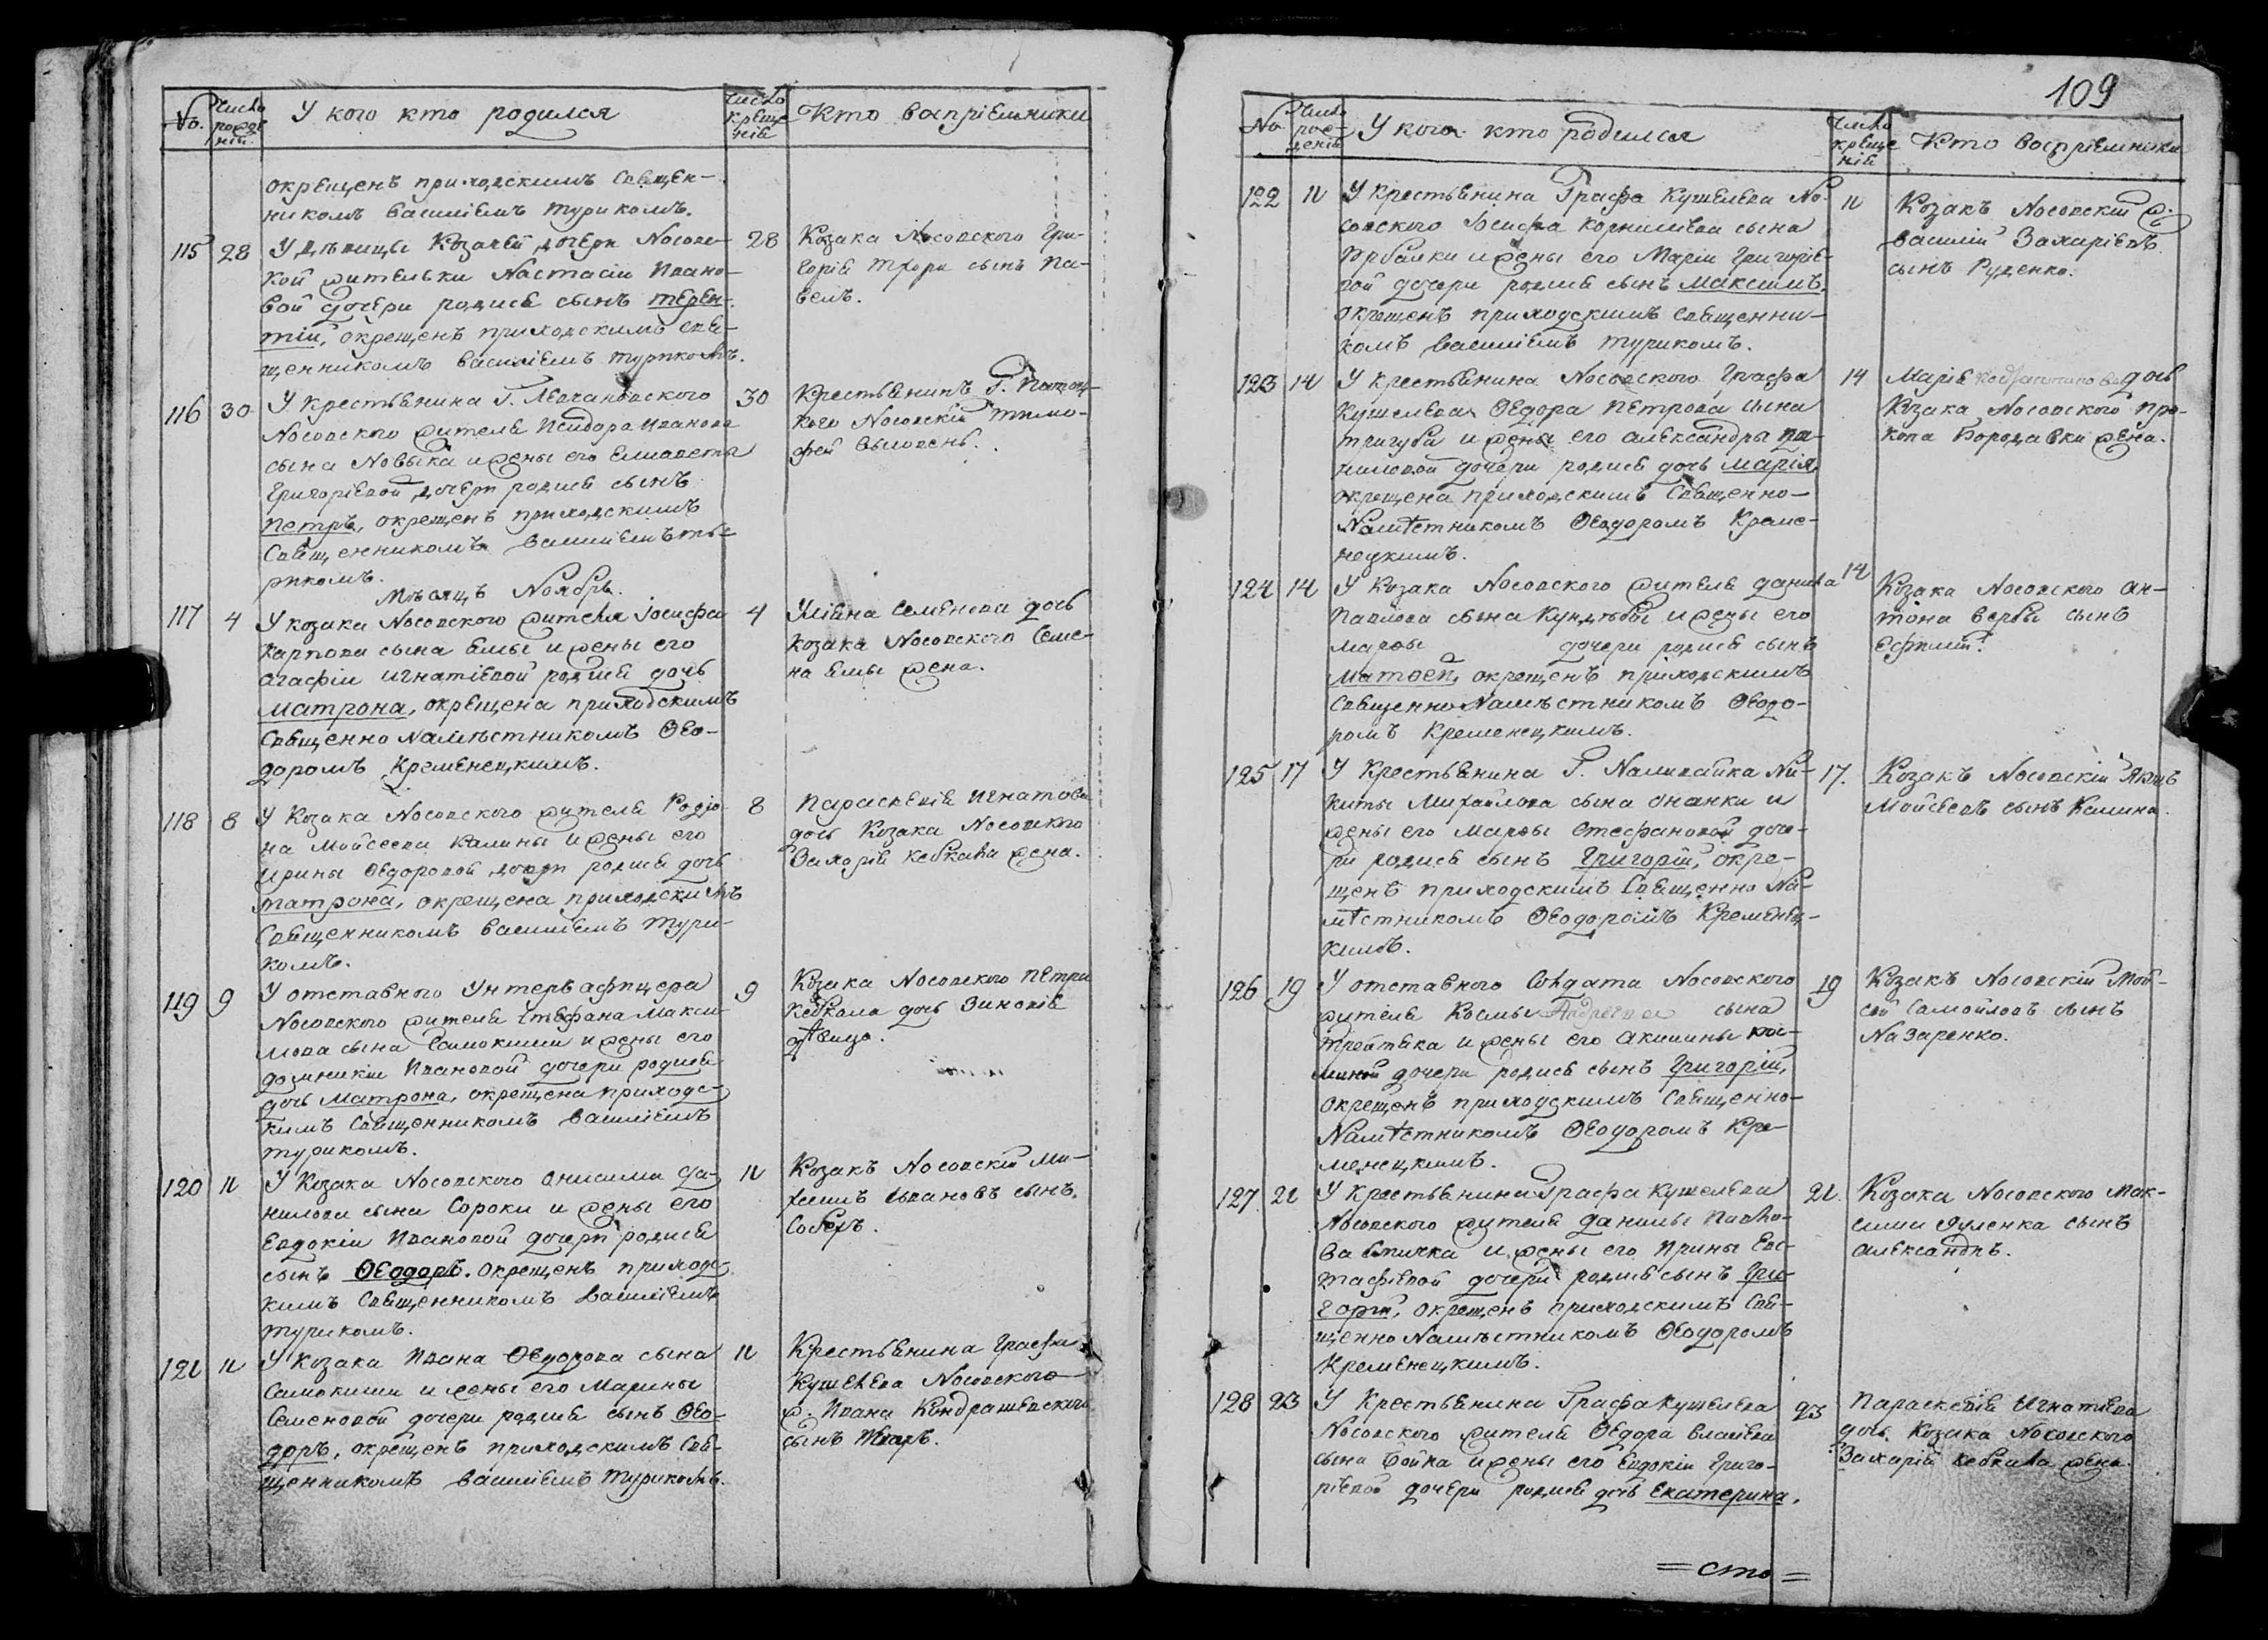 No. Число рожденій У кого кто родился Число крещеніе Кто воспріемники
окрещенъ приходскимъ Священ-
никомъ Василіемъ Турикомъ.
115 28 У дѣвицы Козачей дочери Носовс-
кой жительки Настасіи Ивано-
вой дочери родися сынъ Терен-
тій, окрещенъ приходскимъ Свя-
щенникомъ Василіемъ Турикомъ.
28 Козака Носовского Гри-
горія Тхора сынъ Па-
велъ.
116 30 У Крестьянина Г.
Носовского жителя Исидора Иванова
сына Новыка и жены его Елисаветы
Григоріевой дочери родися сынъ
Петръ, окрещенъ приходскимъ
Священникомъ Василіемъ Ту-
рикомъ.
30 Крестьянинъ Г. Потоц-
кого Носовскій Тимо-
фей
Мѣсяцъ Ноябрь.
117 4 У козака Носовского жителя Іосифа
Карпова сына Билы и жены его
Агафіи Игнатіевой родися дочь
Матрона, окрещена приходскимъ
Священно Намѣстникомъ Ѳео-
доромъ Кременецкимъ.
4 Уліяна Семенова дочь
козака Носовского Семе-
на Билы жена.
118 8 У Козака Носовского жителя Родіо-
на Мойсеева Калины и жены его
Ирины Ѳедоровой дочери родися дочь
Матрона, окрещена приходскимъ
Священникомъ Василіемъ Тури-
комъ.
8 Параскевія Игнатова
дочь Козака Носовского
Захарія Кебкала жена.
119 9 У отставного Унтеръ афицера
Носовского жителя Стефана Макси-
мова сына Самокиши и жены его
Домникіи Ивановой дочери родися
дочь Матрона, окрещена приходс-
кимъ Священникомъ Василіемъ
Турикомъ.
9 Козака Носовского Петра
Кебкала дочь Зиновія
дѣвица.
120 11 У Козака Носовского Онисима Да-
нилова сына Сороки и жены его
Евдокіи Ивановой дочери родися
сынъ Ѳеодоръ. окрещенъ приходс-
кимъ Священникомъ Василіемъ
Турикомъ.
11 Козакъ Носовскій Ми-
хаилъ Ивановъ сынъ
121 11 У Козака Ивана Ѳедорова сына
Самокиши и жены его Марины
Семеновой дочери родися сынъ Ѳео-
доръ, окрещенъ приходскимъ Свя-
щенникомъ Василіемъ Турикомъ.
11 Крестьянина Графа
Кушелева Носовского
ж. Ивана Кондрашевского
сынъ
109
No Число рожденій У кого кто родился Число крещеніе Кто воспріемники
122 11 У Крестьянина Графа Кушелева Но-
совского Іосифа Корниліева сына
и жены его Маріи Григоріе-
вой дочери родися сынъ Максимъ,
окрещенъ приходскимъ Священни-
комъ Василіемъ Турикомъ.
11 Козакъ Носовскій ж.
Василій Захаріевъ
сынъ Руденко.
123 14 У Крестьянина Носовского Графа
Кушелева Ѳедора Петрова сына
Тригуба и жены его Александры
дочери родися дочь Марія,
окрещена приходскимъ Священно-
Намѣстникомъ Ѳеодоромъ Креме-
нецкимъ.
14 Марія дочь
Козака Носовского Про-
копа Бородавки жена.
124 14 У Козака Носовского жителя Данила
Павлова сына Кундюбы и жены его
Марѳы дочери родися сынъ
Матѳей, окрещенъ приходскимъ
Священно Намѣстникомъ Ѳеодо-
ромъ Кременецкимъ.
14 Козака Носовского Ан-
тона Вербы сынъ
Ефимій.
125 17 У Крестьянина Г. Наливайка Ни-
киты Михайлова сына Онанки и
жены его Марѳы Стефановой доче-
ри родися сынъ Григорій, окре-
щенъ приходскимъ Священно На-
мѣстникомъ Ѳеодоромъ Кременец-
кимъ.
17. Козакъ Носовскій Яковъ
Мойсеевъ сынъ Калина.
126 19 У отставного Солдата Носовского
жителя Космы Андреева сына
и жены его Акилины Кос-
миной дочери родися сынъ Григорій,
окрещенъ приходскимъ Священно-
Намѣстникомъ Ѳеодоромъ Кре-
менецкимъ.
19 Козакъ Носовскій Мой-
сей Самойловъ сынъ
Назаренко.
127 21 У Крестьянина Графа Кушелева
Носовского жителя Данилы Павло-
ва и жены его Ирины Евс-
тафіевой дочери родися сынъ Гри-
горій, окрещенъ приходскимъ Свя-
щенно Намѣстникомъ Ѳеодоромъ
Кременецкимъ.
21. Козака Носовского Мак-
сима сынъ
Александръ.
128 23 У Крестьянина Графа Кушелева
Носовского жителя Ѳедора Власіева
сына Бойка и жены его Евдокіи Григо-
ріевой дочери родися дочь Екатерина,
23 Параскевія Игнатіева
дочь Козака Носовского
Захарія Кебкала жена.
= сто =